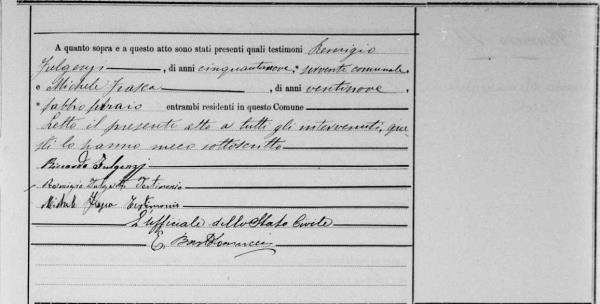 A quanto sopra e a questo atto sono stati presenti quali testimoni Remigio
Fulgenzi, di anni cinquantanove, servente comunale
e Michele Frasca, di anni ventinove,
fabbro ferraio entrambi residenti in questo Comune
Letto il presente atto a tutti gli intervenuti, que
sti lo hanno meco sottoscritto
Riccardo Fulgenzj
Remigio Fulgenzi Testimonio
Michele Frasca Testimonio
L'uffiziale dello Stato Civile
E.